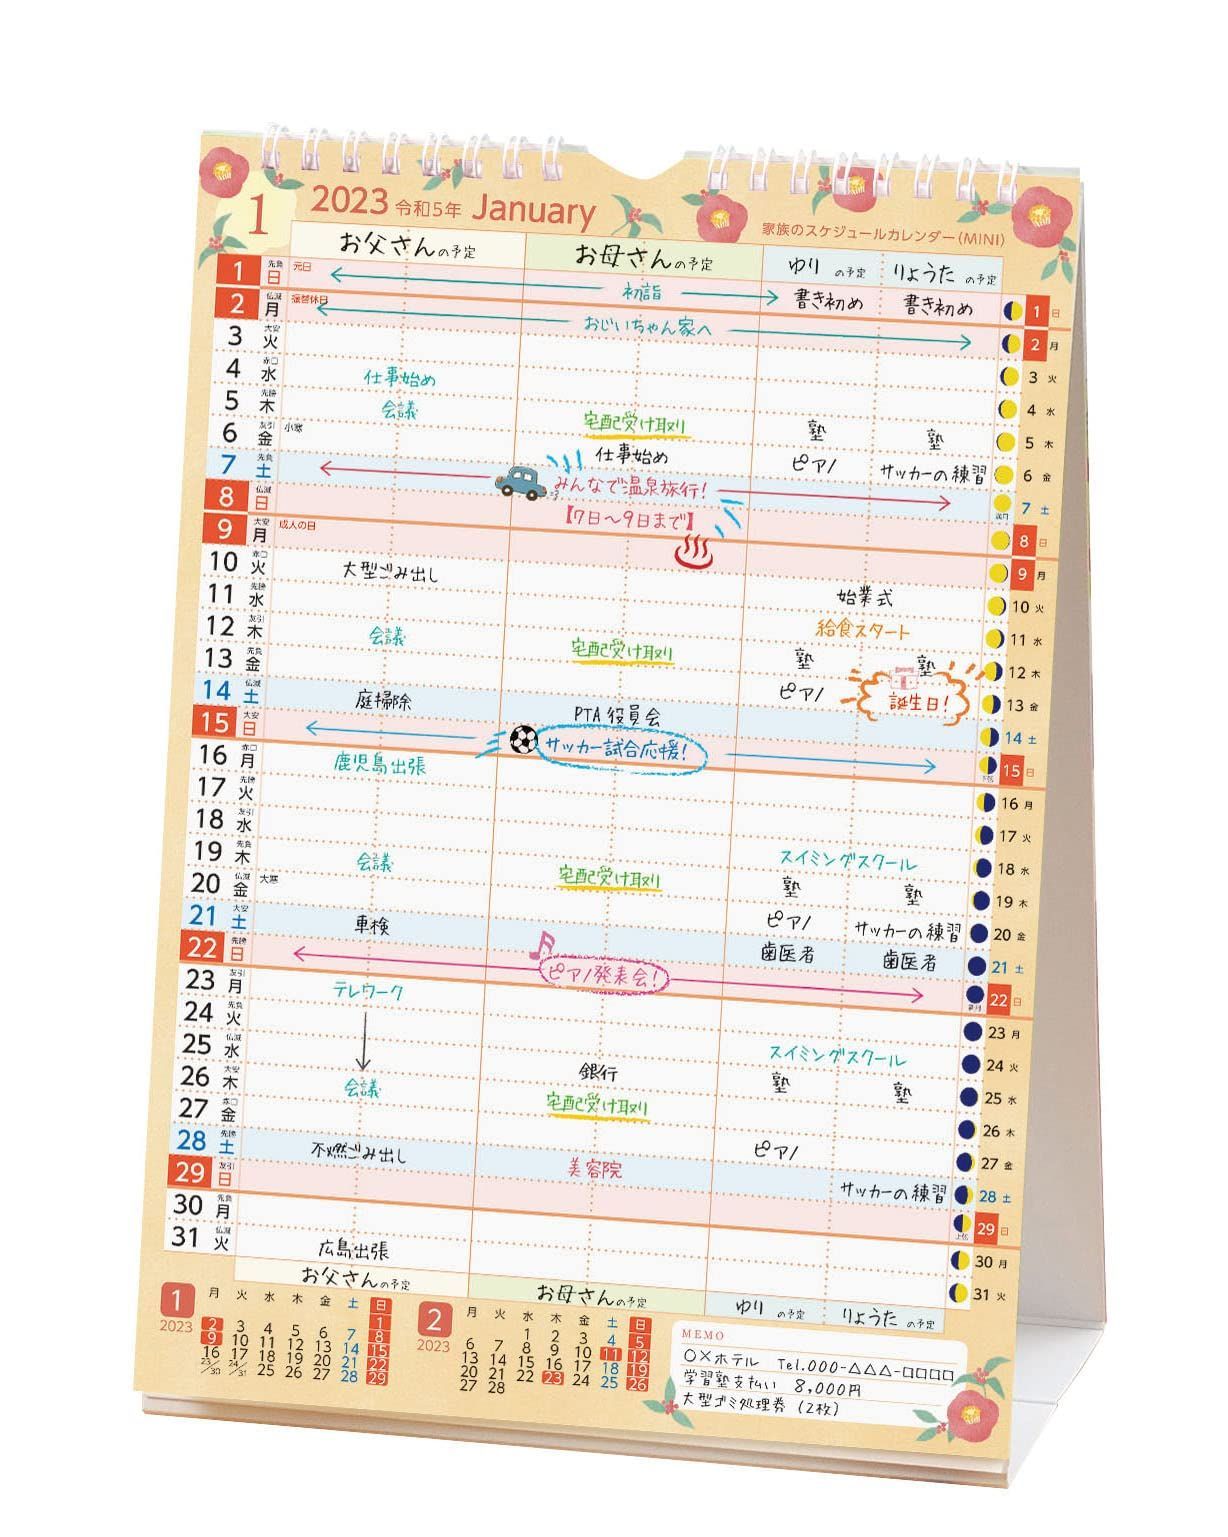 1 2023 令和5年 January
家族のスケジュールカレンダー(MINI)
お父さんの予定 お母さんの予定 ゆりの予定 りょうたの予定
1 先負 日 元日 初詣 書き初め 書き初め 1 日
2 仏滅 月 振替休日 おじいちゃん家へ 2 月
3 大安 火 3 火
4 赤口 水 仕事始め 4 水
5 先勝 木 会議 宅配受け取り 塾 塾 5 木
6 友引 金 小寒 仕事始め ピアノ サッカーの練習 6 金
7 先負 土 みんなで温泉旅行! 満月 7 土
8 仏滅 日 【7日〜9日まで】 8 日
9 大安 月 成人の日 9 月
10 赤口 火 大型ごみ出し 始業式 10 火
11 先勝 水 給食スタート 11 水
12 友引 木 会議 宅配受け取り 塾 塾 12 木
13 先負 金 ピアノ 誕生日! 13 金
14 仏滅 土 庭掃除 PTA役員会 14 土
15 大安 日 サッカー試合応援! 下弦 15 日
16 赤口 月 鹿児島出張 16 月
17 先勝 火 17 火
18 友引 水 スイミングスクール 18 水
19 先負 木 会議 宅配受け取り 塾 塾 19 木
20 仏滅 金 大寒 ピアノ サッカーの練習 20 金
21 大安 土 車検 歯医者 歯医者 21 土
22 先勝 日 ピアノ発表会! 新月 22 日
23 友引 月 テレワーク 23 月
24 先負 火 スイミングスクール 24 火
25 仏滅 水 銀行 塾 塾 25 水
26 大安 木 会議 宅配受け取り 26 木
27 赤口 金 ピアノ 27 金
28 先勝 土 不燃ごみ出し 美容院 サッカーの練習 28 土
29 友引 日 上弦 29 日
30 先負 月 30 月
31 仏滅 火 広島出張 31 火
お父さんの予定 お母さんの予定 ゆりの予定 りょうたの予定
1 2023
月 火 水 木 金 土 日
1
2 3 4 5 6 7 8
9 10 11 12 13 14 15
16 17 18 19 20 21 22
23/30 24/31 25 26 27 28 29
2 2023
月 火 水 木 金 土 日
1 2 3 4 5
6 7 8 9 10 11 12
13 14 15 16 17 18 19
20 21 22 23 24 25 26
27 28
MEMO
○×ホテル Tel.000-△△△-□□□□
学習塾支払い 8,000円
大型ゴミ処理券 (2枚)